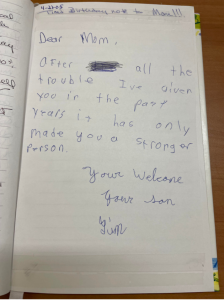 Dear Mom,
After all the
trouble I've given
you in the past
years it has only
made you a stronger
person.
Your Welcome
Your son
Jim